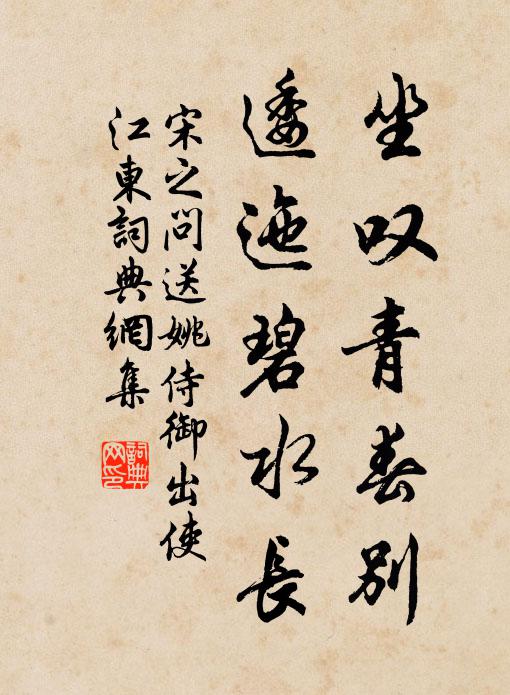 坐叹青春别
逶迤碧水长
宋之问送姚侍御出使
江東詞典網集
詞典
网印